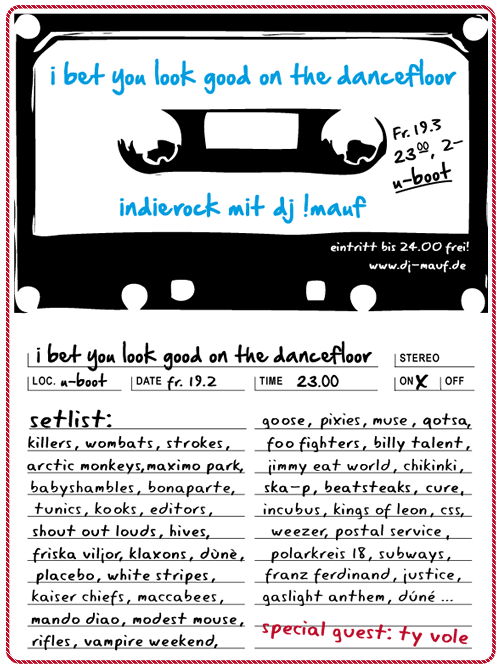 i bet you look good on the dancefloor
Fr. 19.3
23⁰⁰, 2-
u-boot
indierock mit dj !mauf
eintritt bis 24.00 frei!
www.dj-mauf.de
i bet you look good on the dancefloor
STEREO
LOC. u-boot DATE fr. 19.2 TIME 23.00 ON X OFF
setlist:
killers, wombats, strokes,
arctic monkeys, maximo park,
babyshambles, bonaparte,
tunics, kooks, editors,
shout out louds, hives,
friska viljor, klaxons, dúnè,
placebo, white stripes,
kaiser chiefs, maccabees,
mando diao, modest mouse,
rifles, vampire weekend,
goose, pixies, muse, qotsa,
foo fighters, billy talent,
jimmy eat world, chikinki,
ska-p, beatsteaks, cure,
incubus, kings of leon, css,
weezer, postal service,
polarkreis 18, subways,
franz ferdinand, justice,
gaslight anthem, dúné ...
special guest: ty vole